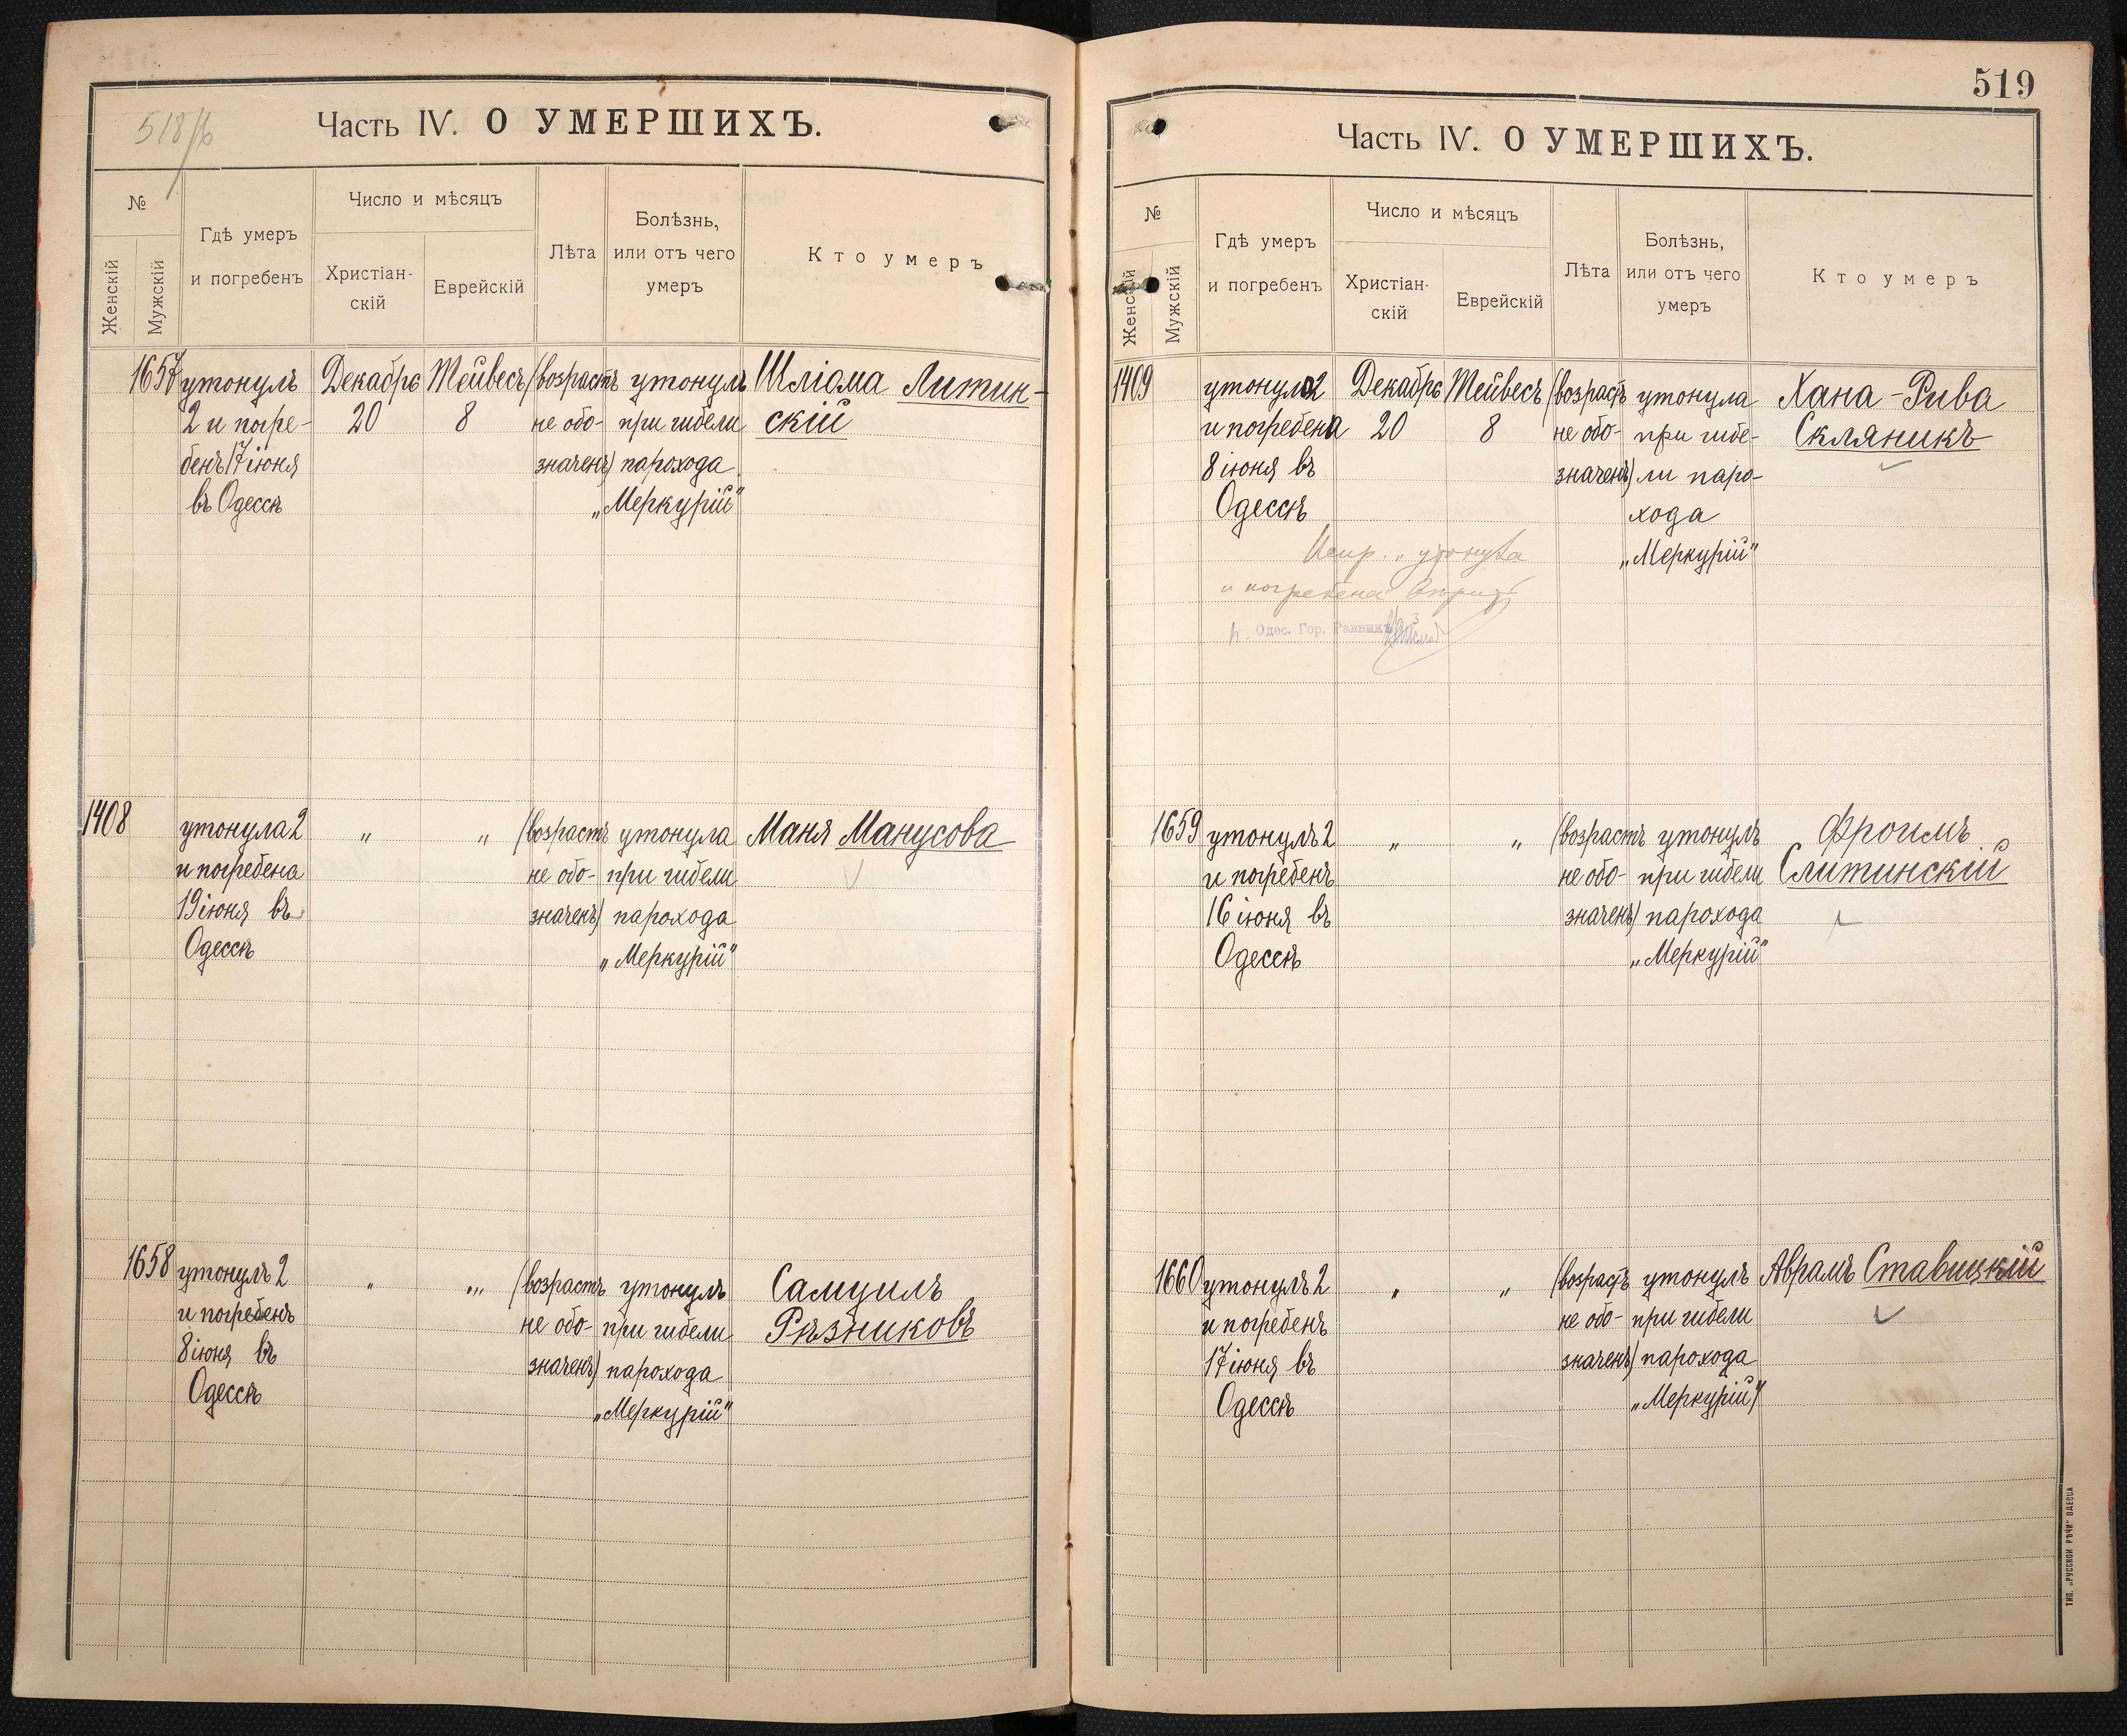 518/б
Часть IV. О УМЕРШИХЪ.
№
Женскій
Мужскій
Гдѣ умеръ
и погребенъ
Число и мѣсяцъ
Христіан-
скій
Еврейскій
Лѣта
Болѣзнь,
или отъ чего
умеръ
Кто умеръ
1657 утонулъ Декабрь Тейвесъ (возрастъ утонулъ Шліома Литин-
2 и погре- 20 8 не обо- при гибели скій
бенъ 17 іюня значенъ) парохода
въ Одессѣ „Меркурій“
1408 утонула 2 „ „ (возрастъ утонула Маня Манусова
и погребена не обо- при гибели
19 іюня въ значенъ) парохода
Одессѣ „Меркурій“
1658 утонулъ 2 „ „ (возрастъ утонулъ Самуилъ
и погребенъ не обо- при гибели Рѣзниковъ
8 іюня въ значенъ) парохода
Одессѣ „Меркурій“
519
Часть IV. О УМЕРШИХЪ.
№
Женскій
Мужскій
Гдѣ умеръ
и погребенъ
Число и мѣсяцъ
Христіан-
скій
Еврейскій
Лѣта
Болѣзнь,
или отъ чего
умеръ
Кто умеръ
1409 утонула 2 Декабрь Тейвесъ (возрастъ утонула Хана-Рива
и погребена 20 8 не обо- при гибе- Скляникъ
8 іюня въ значенъ) ли паро-
Одессѣ хода
„Меркурій“
Испр. „утонула
и погребена“ вѣрить
Одес. Гор. Раввинъ
1659 утонулъ 2 „ „ (возрастъ утонулъ Фроимъ
и погребенъ не обо- при гибели Слитинскій
16 іюня въ значенъ) парохода
Одессѣ „Меркурій“
1660 утонулъ 2 „ „ (возрастъ утонулъ Аврамъ Ставицкій
и погребенъ не обо- при гибели
17 іюня въ значенъ) парохода
Одессѣ „Меркурій“
ТИП. „РУССКОЙ РѢЧИ“ ОДЕССА